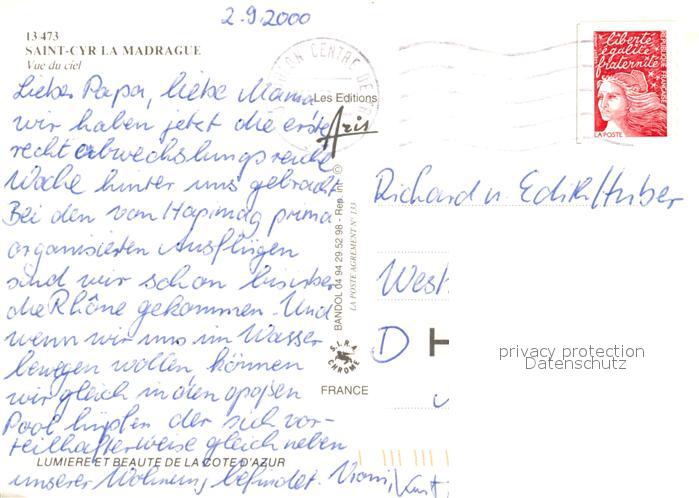 2.9.2000
13 473
SAINT-CYR LA MADRAGUE
Vue du ciel
Lieber Papa, liebe Mama
wir haben jetzt die erste
recht abwechslungsreiche
Woche hinter uns gebracht
Bei den von Hapimag prima
organisierten Ausflügen
sind wir schon bis über
die Rhône gekommen. Und
wenn wir uns im Wasser
bewegen wollen können
wir gleich in den großen
Pool hüpfen der sich vor-
teilhafterweise gleich neben
unserer Wohnung befindet. Vroni, Kurt
LUMIERE ET BEAUTE DE LA COTE D'AZUR
Les Editions
Aris
BANDOL 04 94 29 52 98 - Rep. int ©
LA POSTE AGREMENT N° 133
S.I.R.A.
CHROME
FRANCE
CENTRE DE
liberté
égalité
fraternité
REPUBLIQUE FRANÇAISE
LA POSTE
Richard u. Edith Huber
West
D
privacy protection
Datenschutz